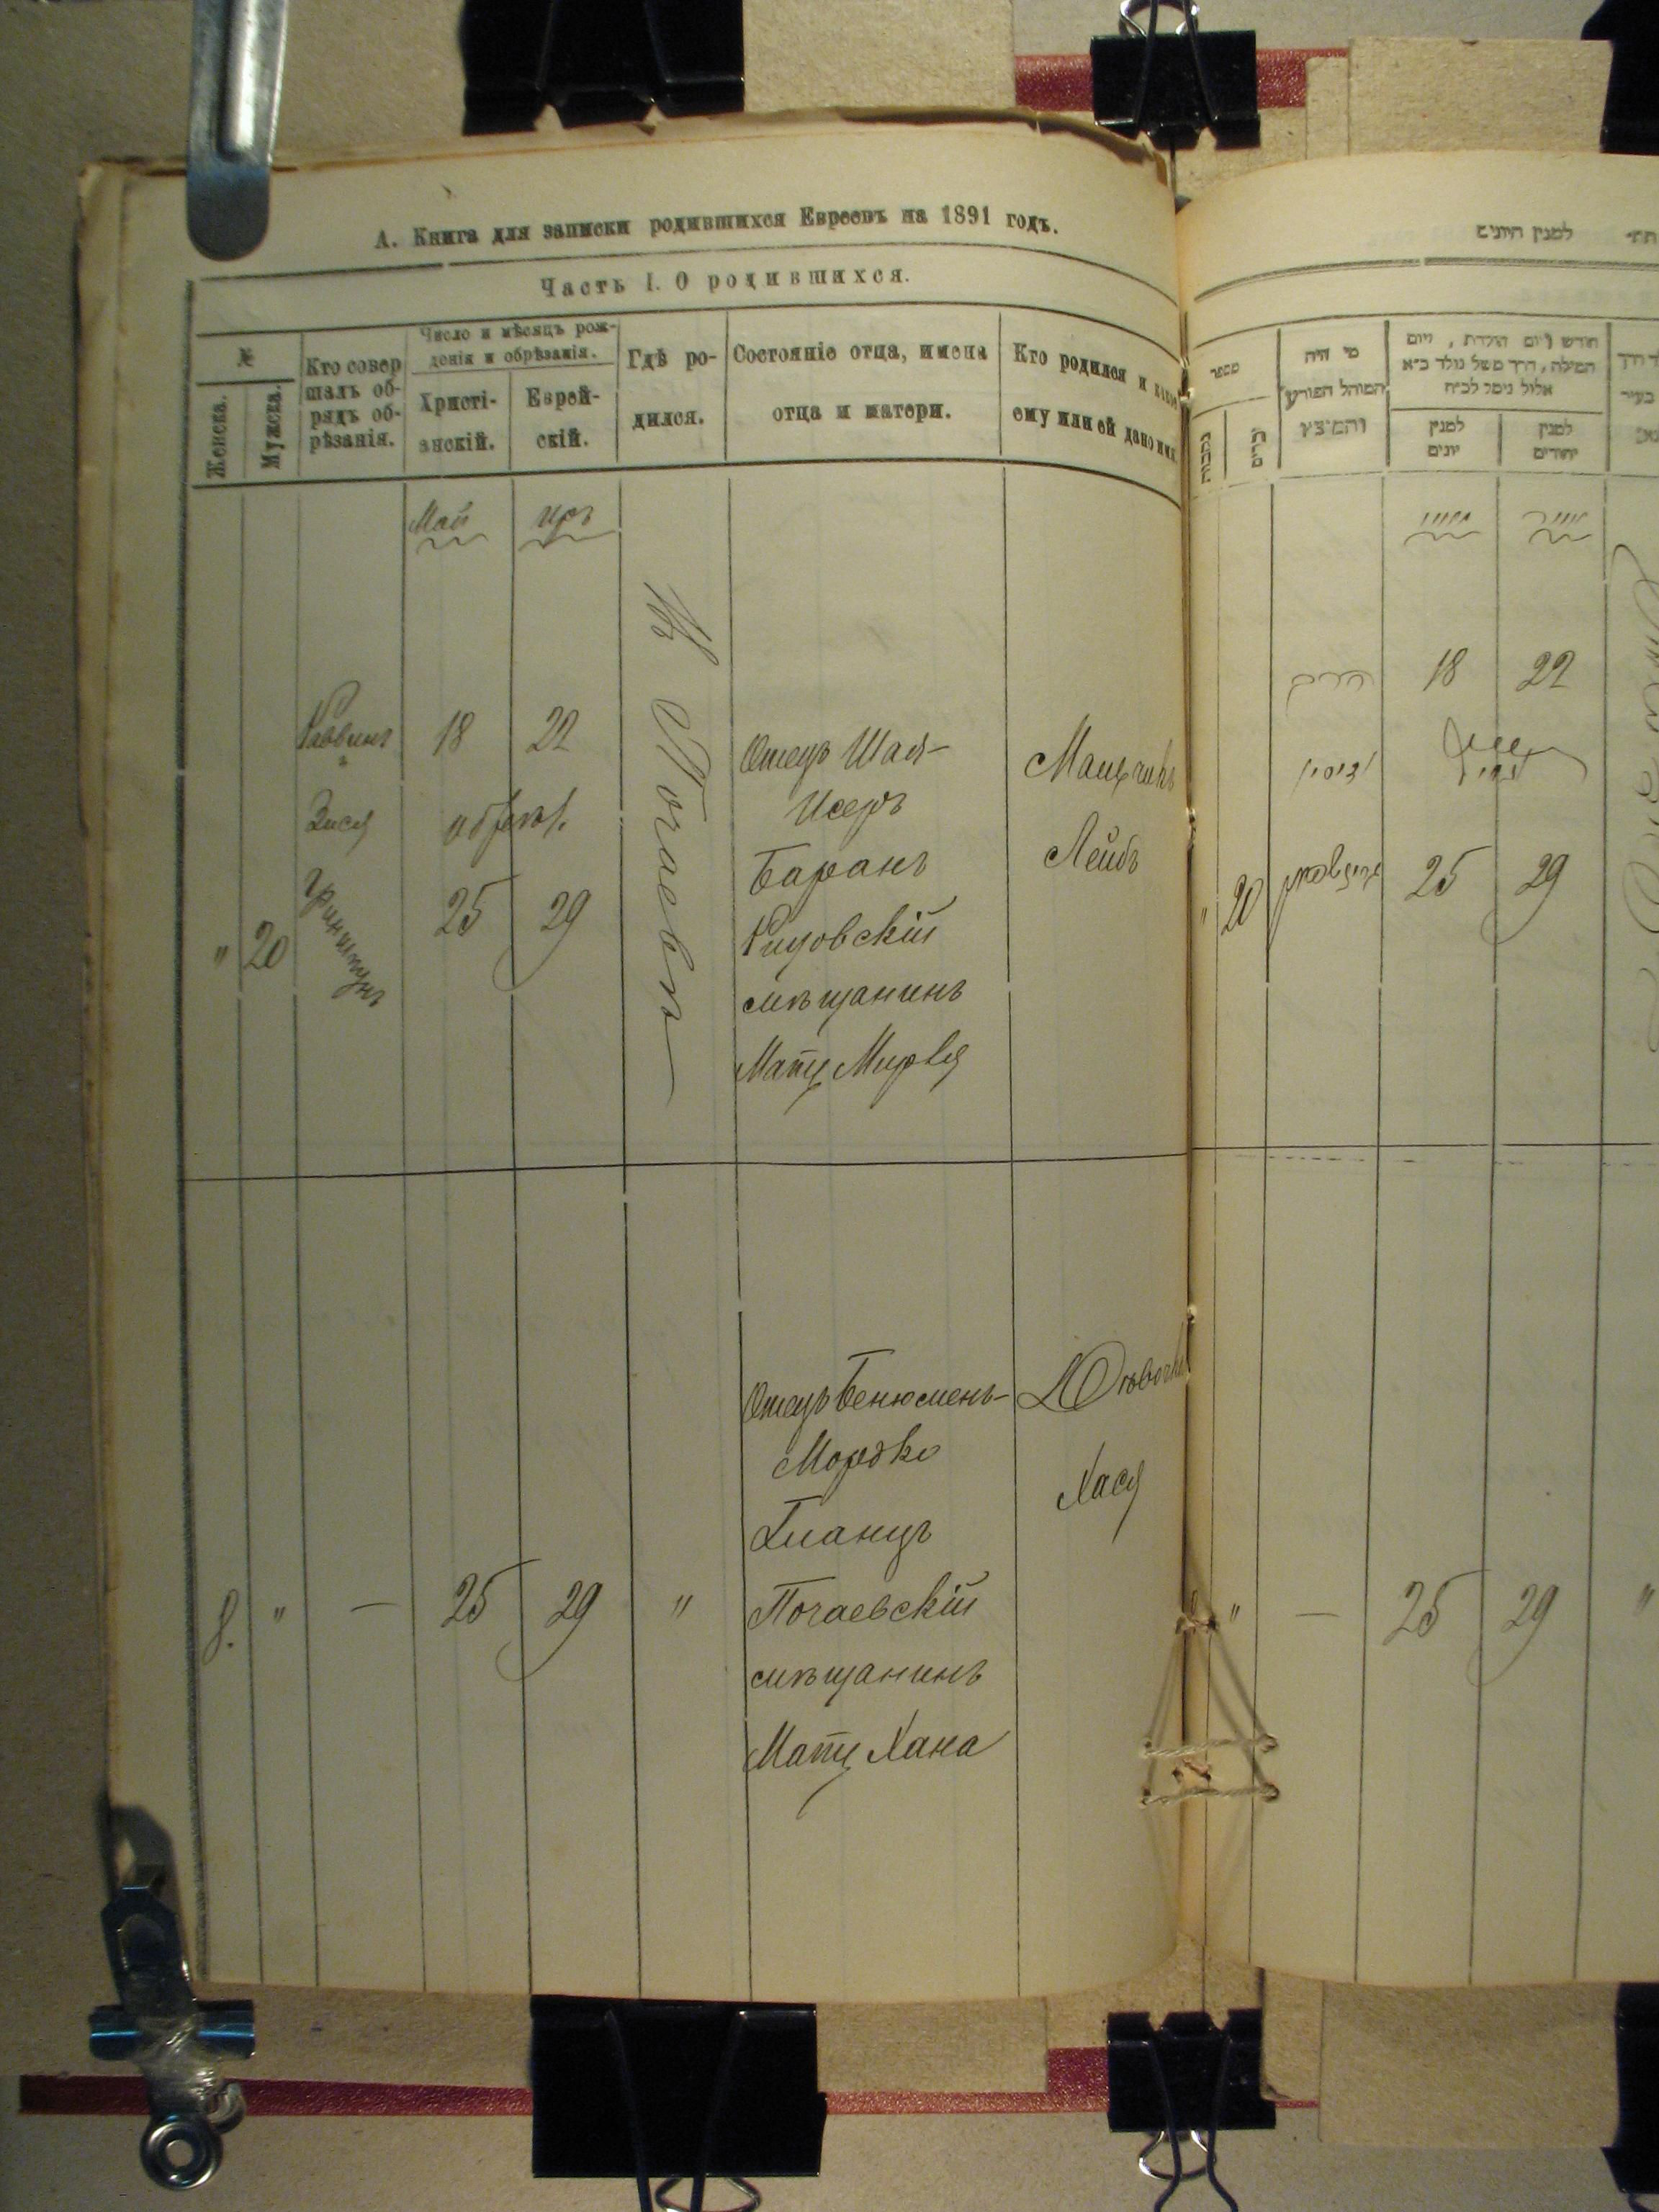 А. Книга для записки родившихся Евреевъ на 1891 годъ.
Часть I. О родившихся.
№
Женска.
Мужска.
Кто совер
шалъ об-
рядъ об-
рѣзанія.
Число и мѣсяцъ рож-
денія и обрѣзанія.
Христі-
анскій.
Еврей-
скій.
Гдѣ ро-
дился.
Состояніе отца, имена
отца и матери.
Кто родился и какое
ему или ей дано имя.
Май
Иръ
Въ Почаевѣ
" 20
Раввинъ
Зися
18 22
обрѣз.
25 29
Отецъ Шая-
Исеръ
Баранъ
мѣщанинъ
Мать Мирля
Мальчикъ
Лейбъ
8. " — 25 29 "
Отецъ Бенюменъ-
Мордко
Гланцъ
Почаевскій
мѣщанинъ
Мать Хана
Дѣвочка
Хася
למנין היונים
מספר
נקבות
זכרים
מי היה
המוהל הפורע
והמוצץ
חודש ויום הולדת, ויום
המילה, דרך משל נולד כ״א
אלול נימול לכ״ח
למנין
יונים
למנין
יהודים
18 22
" 20
25 29
" — 25 29 "